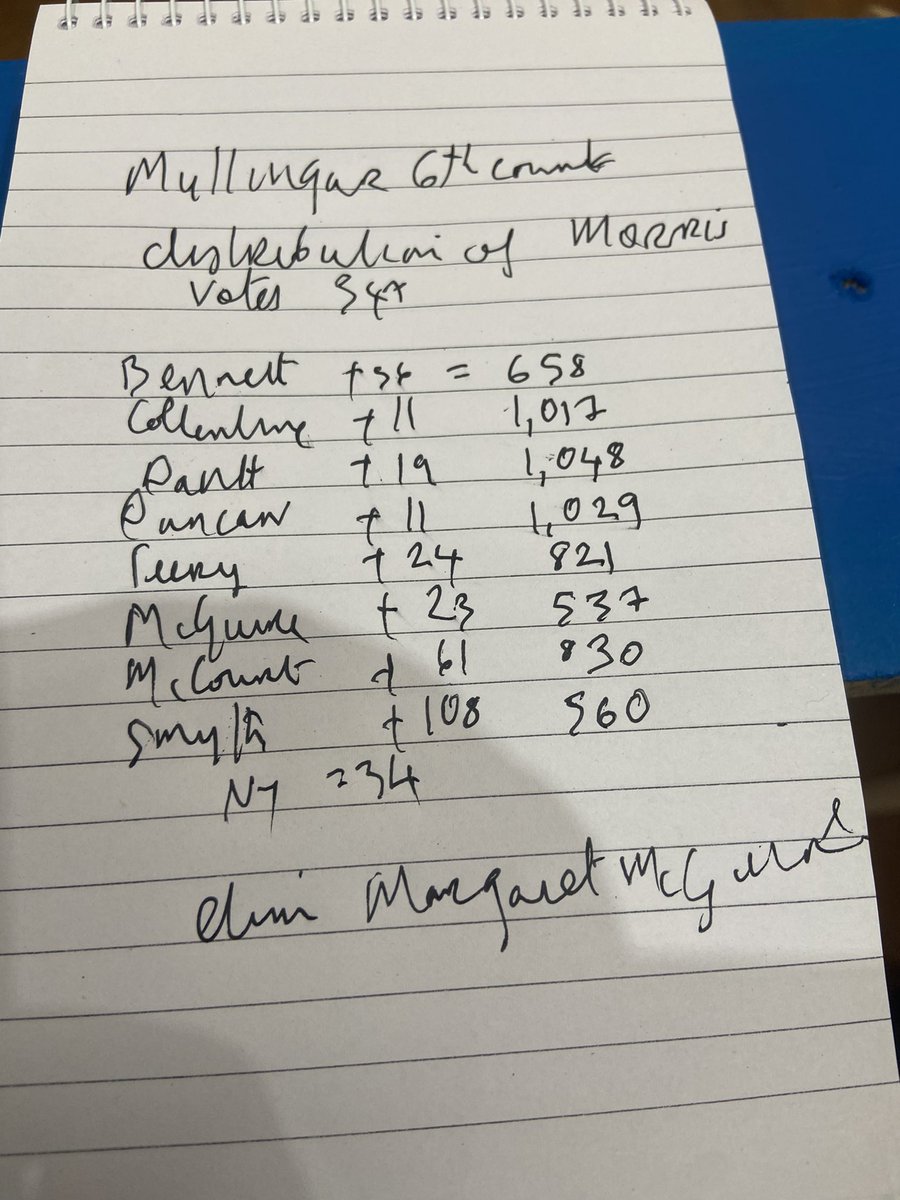 Mullingar 6th count
distribution of Morris
votes 347
Bennett +56 = 658
Collentine +11 1,017
Davitt +19 1,048
Duncan +11 1,029
Feery +24 821
McGuire + 23 537
McCourt + 61 830
Smyth + 108 560
NT = 34
elim Margaret McGuire